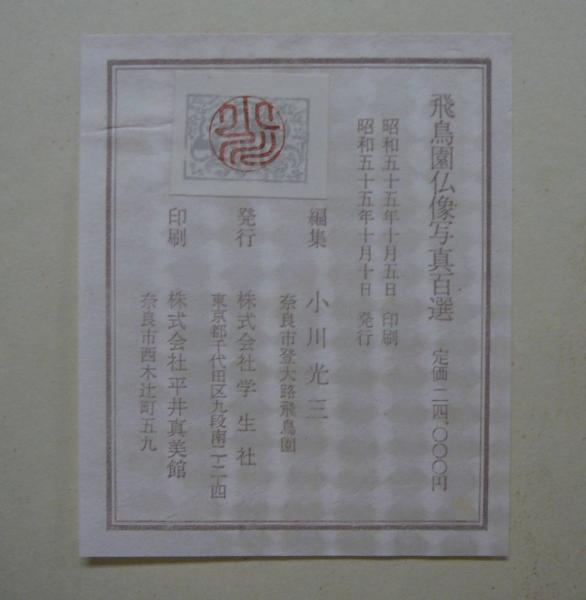 飛鳥園仏像写真百選　定価 二四、〇〇〇円
昭和五十五年十月五日　印刷
昭和五十五年十月十日　発行
編集　小川光三
奈良市登大路飛鳥園
発行　株式会社学生社
東京都千代田区九段南二ー二ー四
印刷　株式会社平井真美館
奈良市西木辻町五九